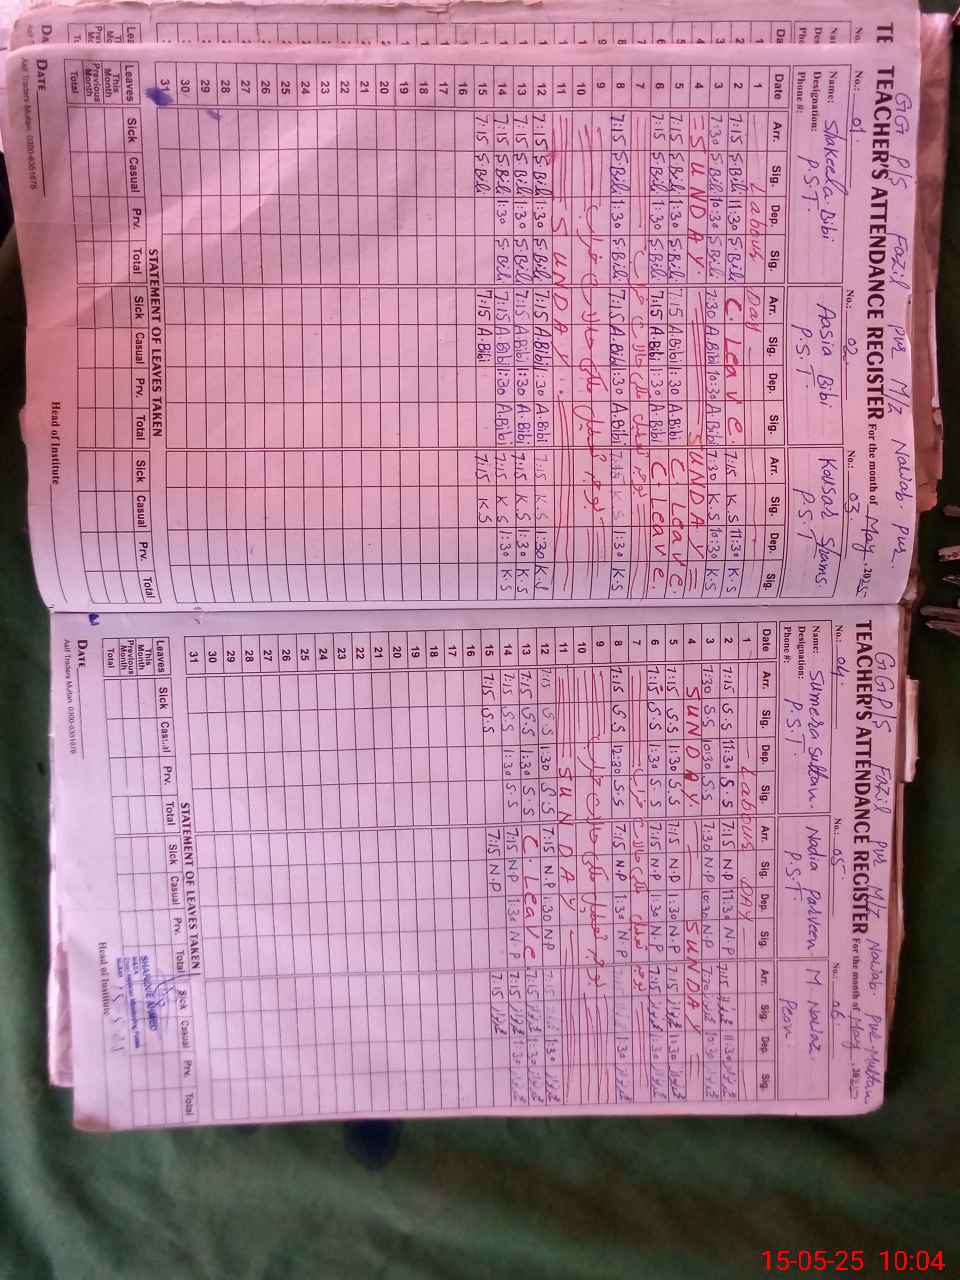 GG P/S Fazil pur M/z Nawab pur.
TEACHER'S ATTENDANCE REGISTER For the month of May, 2025
No.: 01. No.: 02. No.: 03.
Name: Shakeela Bibi Aasia Bibi Kousar Shams.
Designation: P.S.T. P.S.T. P.S.T
Phone #:
Date Arr. Sig. Dep. Sig. Arr. Sig. Dep. Sig. Arr. Sig. Dep. Sig.
1 Labour Day
2 7:15 S.Bibi 11:30 S.Bibi C. Leave. 7:15 K.S 11:30 K.S
3 7:30 S.Bibi 10:30 S.Bibi 7:30 A.Bibi 10:30 A.Bibi 7:30 K.S 10:30 K.S
4 SUNDAY. SUNDAY
5 7:15 S.Bibi 1:30 S.Bibi 7:15 A.Bibi 1:30 A.Bibi C. Leave.
6 7:15 S.Bibi 1:30 S.Bibi 7:15 A.Bibi 1:30 A.Bibi C. Leave.
7
8 7:15 S.Bibi 1:30 S.Bibi 7:15 A.Bibi 1:30 A.Bibi 7:15 K.S 1:30 K.S
9
10
11 SUNDAY.
12 7:15 S.Bibi 1:30 S.Bibi 7:15 A.Bibi 1:30 A.Bibi 7:15 K.S 1:30 K.S
13 7:15 S.Bibi 1:30 S.Bibi 7:15 A.Bibi 1:30 A.Bibi 7:15 K.S 1:30 K.S
14 7:15 S.Bibi 1:30 S.Bibi 7:15 A.Bibi 1:30 A.Bibi 7:15 K.S 1:30 K.S
15 7:15 S.Bibi 7:15 A.Bibi 7:15 K.S
16
17
18
19
20
21
22
23
24
25
26
27
28
29
30
31
STATEMENT OF LEAVES TAKEN
Leaves Sick Casual Prv. Total Sick Casual Prv. Total Sick Casual Prv. Total
This Month
Previous Month
Total
Head of Institute
DATE
Asif Traders Multan. 0300-6351678
GGP/S Fazil pur M/z Nawab pur Multan
TEACHER'S ATTENDANCE REGISTER For the month of May, 2025
No.: 04. No.: 05. No.: 06.
Name: Sumera Sultan. Nadia Parveen M. Nawaz
Designation: P.S.T. P.S.T. Peon.
Phone #:
Date Arr. Sig. Dep. Sig. Arr. Sig. Dep. Sig. Arr. Sig. Dep. Sig.
1 Labour DAY
2 7:15 S.S 11:30 S.S 7:15 N.P 11:30 N.P 7:15 11:30
3 7:30 S.S 10:30 S.S 7:30 N.P 10:30 N.P 10:30
4 SUNDAY SUNDAY
5 7:15 S.S 1:30 S.S 7:15 N.P 1:30 N.P 7:15 1:30
6 7:15 S.S 1:30 S.S 7:15 N.P 1:30 N.P 7:15 1:30
7
8 7:15 S.S 12:30 S.S 7:15 N.P 1:30 N.P 1:30
9
10
11 SUNDAY
12 7:15 S.S 1:30 S.S 7:15 N.P 1:30 N.P 7:15 1:30
13 7:15 S.S 1:30 S.S C. Leave 7:15 1:30
14 7:15 S.S 1:30 S.S 7:15 N.P 1:30 N.P 7:15 1:30
15 7:15 S.S 7:15 N.P 7:15
16
17
18
19
20
21
22
23
24
25
26
27
28
29
30
31
STATEMENT OF LEAVES TAKEN
Leaves Sick Casual Prv. Total Sick Casual Prv. Total Sick Casual Prv. Total
This Month
Previous Month
Total
Head of Institute
DATE
Asif Traders Multan. 0300-6351678
15-05-25 10:04